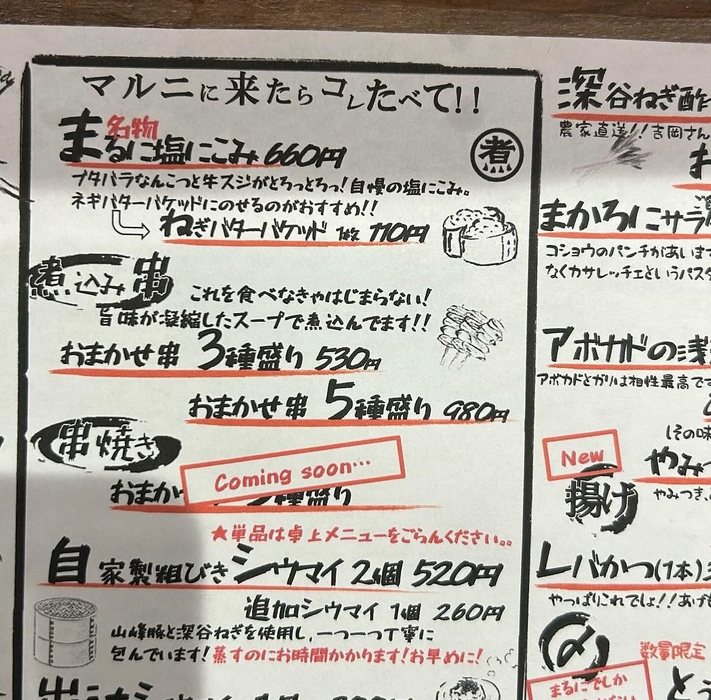 マルニに来たらコレたべて!!
名物
まるに塩にこみ 660円
煮
ブタバラなんこつと牛スジがとろっとろっ!自慢の塩にこみ。
ネギバターバケッドにのせるのがおすすめ!!
ねぎバターバケッド 1枚 110円
煮込み串
これを食べなきゃはじまらない!
旨味が凝縮したスープで煮込んでます!!
おまかせ串 3種盛り 530円
おまかせ串 5種盛り 980円
串焼き
Coming soon…
おまか
種盛り
★単品は卓上メニューをごらんください。。
自家製粗びきシウマイ 2個 520円
追加シウマイ 1個 260円
山峰豚と深谷ねぎを使用し、一つ一つ丁寧に
包んでいます!蒸すのにお時間かかります!お早めに!
深谷ねぎ酢
農家直送!!吉岡さん
まかろにサラ
コショウのパンチがあいま
なくカサレッチェというパス
アボカドの浅
アボカドとがりは相性最高で
この味
New
やみつ
揚げ
やみつき、
レバかつ(1本)
やっぱりこれでしょ!!あげ
〆
数量限定
まるにでしか